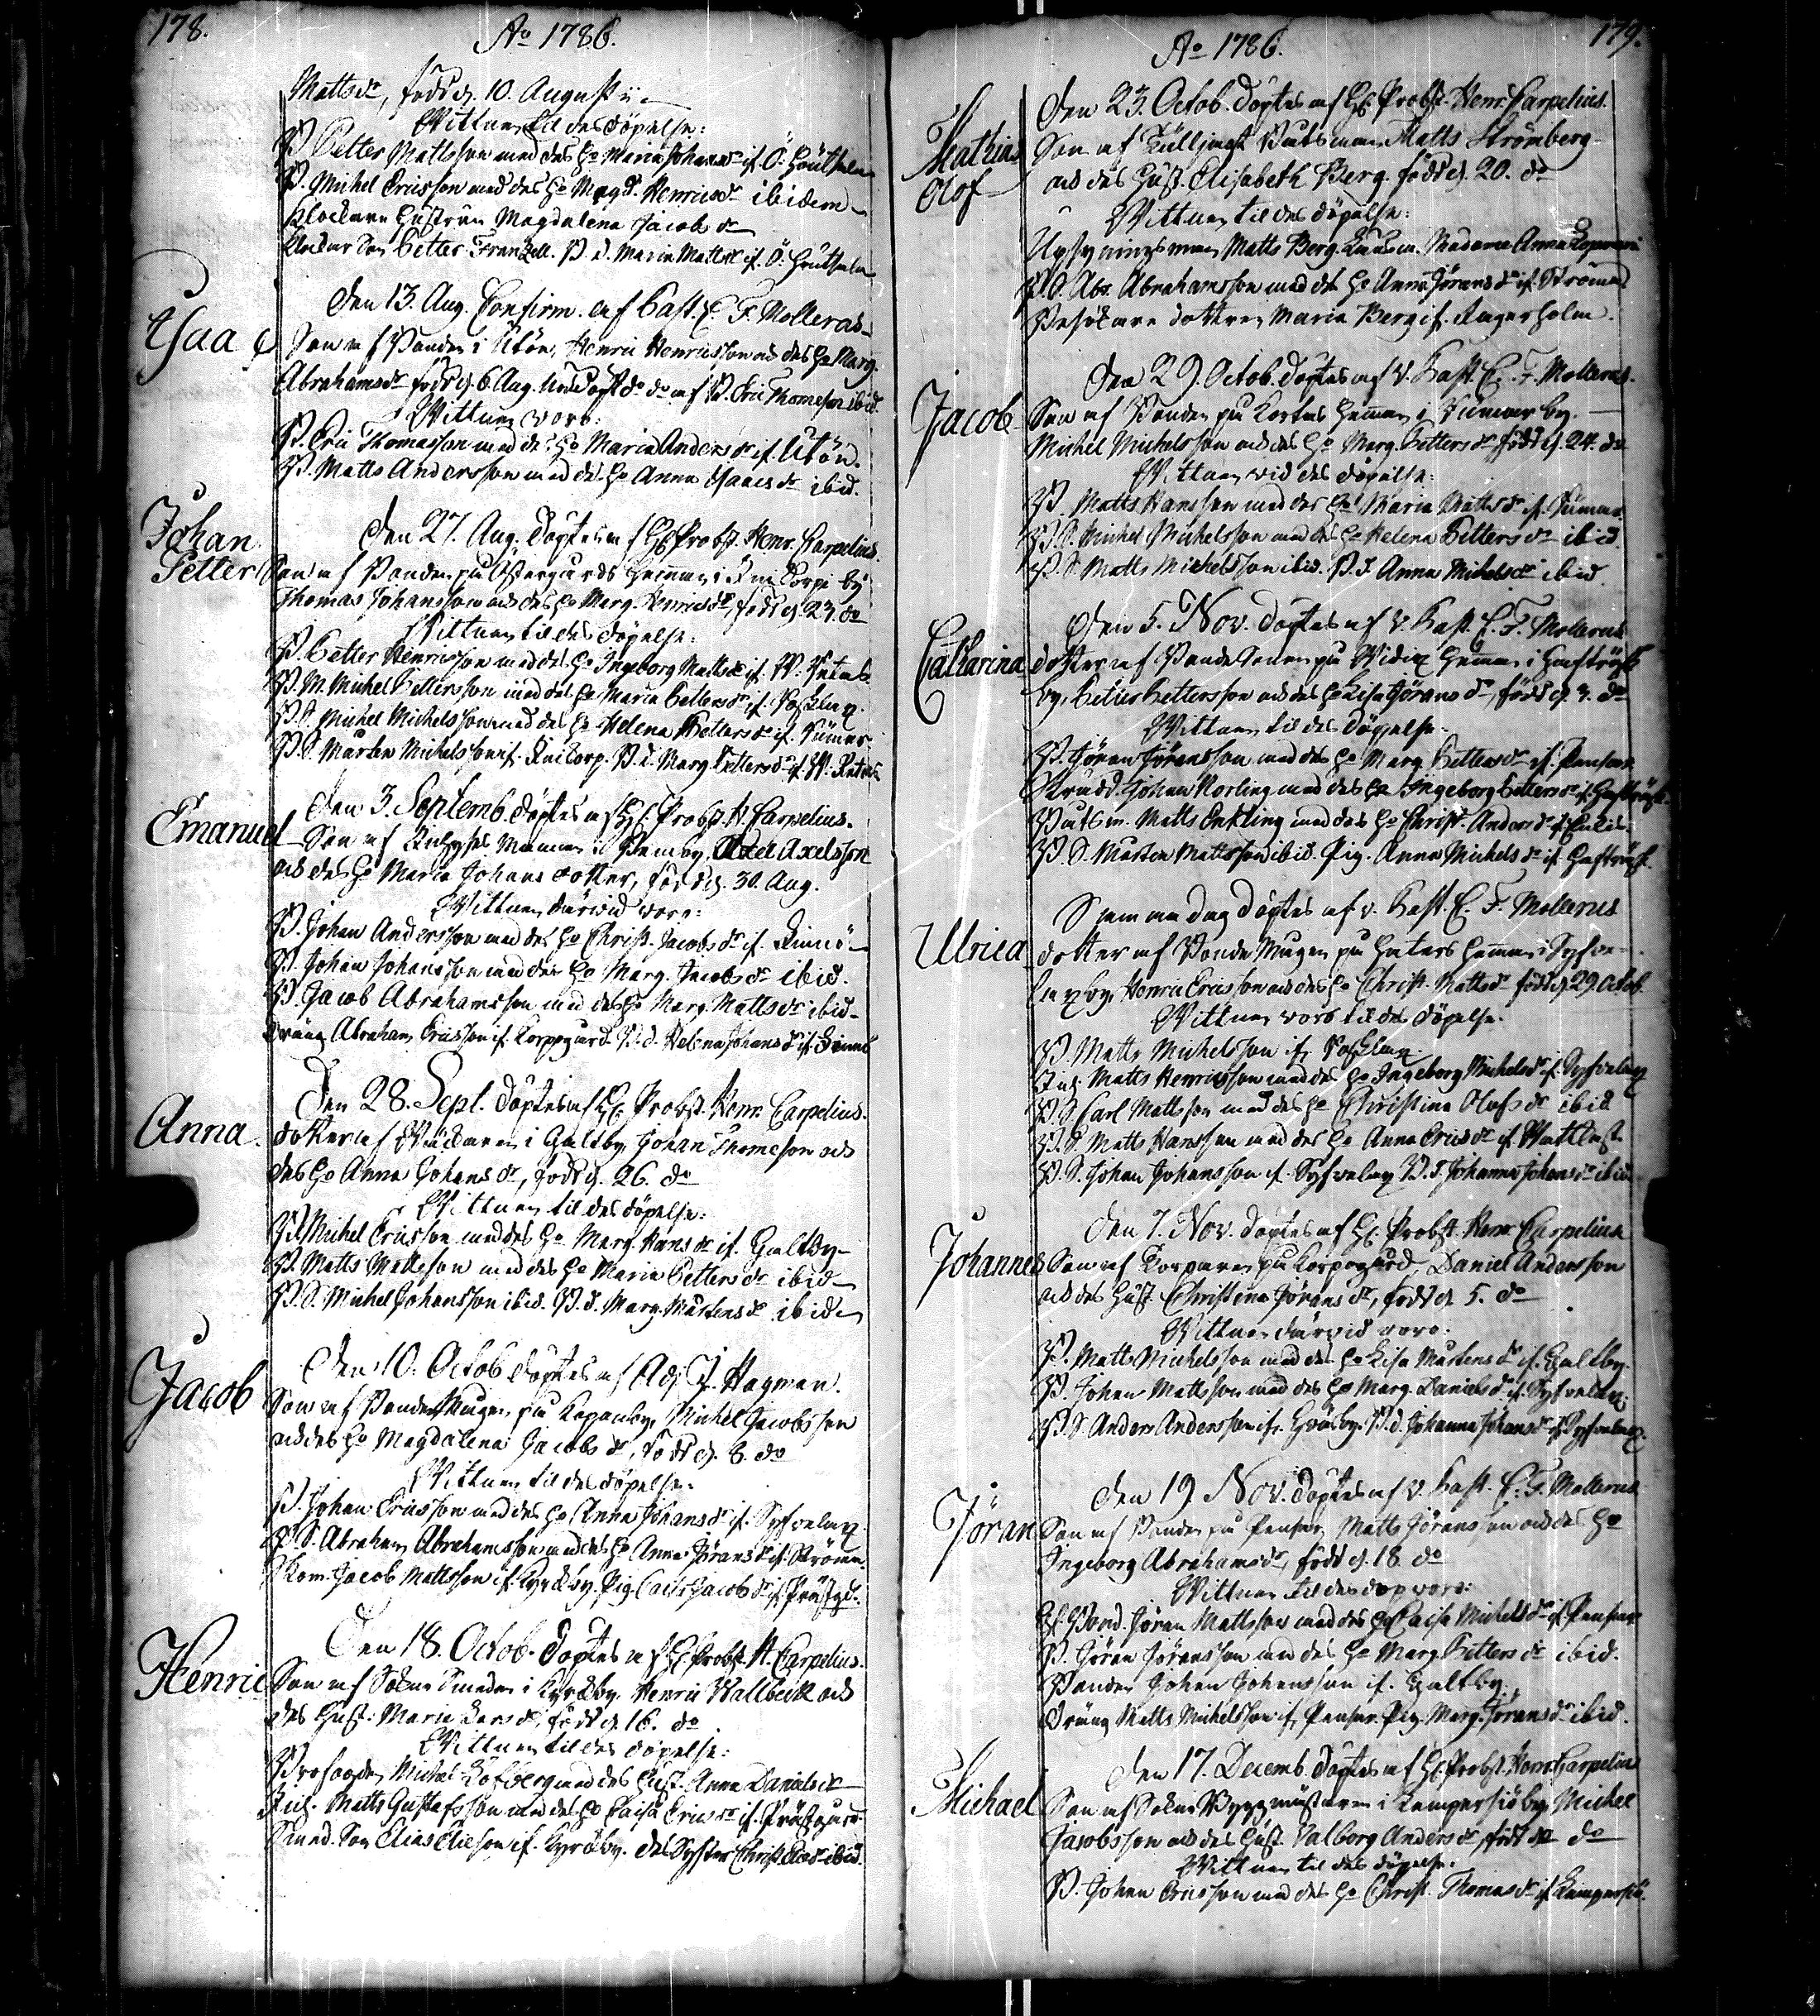 178.
Ao 1786.
Mattsdr, född d. 10. Augustii
Wittnen til des döpelse:
B. Petter Mattsson med des Ho Maria Johansdr if.
B. Michel Ericsson med des Ho Magd. Henricsdr ibidem
Klockare Hustrun Magdalena Jacobsdr
Klockar Son Petter Franzell. B. d. Maria Mattsdr if.
Isaac
Den 13. Aug. Confirm. af Past. C. F. Mollerus
Son af Bonden i Utön, Henric Henricsson och des Ho Marg.
Abrahamsdr född d. 6. Aug. Nöddöpt do do af B. Eric Thomeson ibid.
Wittnen voro:
B. Eric Thomasson med des Ho Maria Andersdr if. Utön.
B. Matts Andersson med des Ho Anna Isaacsdr ibid.
Johan Petter
Den 27. Aug. döptes af H. Probst. Henr. Carpelius.
Son af Bonden på Östergårds Hemman i by
Thomas Johansson och des Ho Marg. Henricsdr, född d. 23. do
Wittnen til des döpelse:
B. Petter Henricsson med des Ho Ingeborg Mattsdr if. W.
B. M. Michel Pettersson med des Ho Maria Pettersdr if.
B. S. Michel Michelsson med des Ho Helena Pettersdr if.
B. S. Mårten Michelsson if. B. d. Marg. Pettersdr if. W.
Emanuel
Den 3. Septemb. döptes af H. Probst. H. Carpelius.
Son af i by, Axel Axelsson
och des Ho Maria Johans dotter, född d. 30. Aug.
Wittnen därwid voro:
B. Johan Andersson med des Ho Christ. Jacobsdr if.
B. Johan Johansson med des Ho Marg. Jacobsdr ibid.
B. Jacob Abrahamsson med des Ho Marg. Mattsdr ibid.
Dräng Abraham Ericsson if. Korpogård. B. d. Helena Johansdr if.
Anna
Den 28. Sept. döptes af H. Probst. Henr. Carpelius.
dotter af i Galtby Johan Thomeson och
des Ho Anna Johansdr, född d. 26. do
Wittnen til des döpelse:
B. Michel Ericsson med des Ho Marg. Hansdr if. Galtby
B. Matts Mattsson med des Ho Maria Pettersdr ibid.
B. S. Michel Johansson ibid. B. d. Marg. Mårtensdr ibid.
Jacob
Den 10. Octob. döptes af Adj. J. Hagman.
Son af Bonde Mågen på by, Michel Jacobsson
och des Ho Magdalena Jacobsdr, född d. 8. do
Wittnen til des döpelse:
B. Johan Ericsson med des Ho Anna Johansdr if. Syfvelax
B. S. Abraham Abrahamsson med des Ho Anna Jöransdr if. Strömm.
Skom. Jacob Mattsson if. Kyrkby. Pig. Caisa Jacobsdr if. Prästgd.
Henric
Den 18. Octob. döptes af H. Probst. H. Carpelius.
Son af Sokne Smeden i Kyrkby, Henric Wallbeck och
des Hust. Maria Larsdr, född d. 16. do
Wittnen til des döpelse:
Michel med des Hust. Anna Danielsdr
Inh. Matts Gustafsson med des Ho Caisa Ericsdr if. Prästgård
Smed. Son Elias Elieson if. Kyrkby. des Syster Christ. Eliædr ibid.
179.
Ao 1786.
Mathias Olof
Den 23. Octob. döptes af H. Probst. Henr. Carpelius.
Son af Båtsman Matts Strömberg
och des Hust. Elisabeth Berg. född d. 20. do
Wittnen til des döpelse:
Upsyningsman Matts Berg. Madame Anna
B. S. Abr. Abrahamsson med des Ho Anna Jöransdr if. Strömma
Besökare dottren Maria Berg if. Ragerholm.
Jacob
Den 29. Octob. döptes af v. Past. C. F. Mollerus.
Son af Bonden på Hemman i by.
Michel Michelsson och des Ho Marg. Pettersdr född d. 24. do
Wittnen vid des döpelse:
B. Matts Hansson med des Ho Maria Mattsdr if.
B. S. Michel Michelsson med des Ho Helena Pettersdr ibid.
B. S. Matts Michelsson ibid. B. d. Anna Michelsdr ibid.
Catharina
Den 5. Nov. döptes af v. Past. C. F. Mollerus
dotter af Bonde Sonen på Hemman i
by, Petter Pettersson och des Ho Lisa Jöransdr, född d. 3. do
Wittnen til des döpelse:
B. Jöran Jöransson med des Ho Marg. Pettersdr if. Pensar
Skrädd. Johan Norling med des Ho Ingeborg Pettersdr if.
Båtsm. Matts Enkling med des Ho Christ. Andersdr if.
B. S. Mårten Mattsson ibid. Pig. Anna Michelsdr if.
Ulrica
Samma dag döptes af v. Past. C. F. Mollerus
dotter af Bonde Mågen på Hemman i Syfve-
lax by, Henric Ericsson och des Ho Christ. Mattsdr född d. 29 Octob.
Wittnen voro til des döpelse:
B. Matts Michelsson if.
Inh. Matts Henricsson med des Ho Ingeborg Michelsdr if. Syfvelax
B. S. Carl Mattsson med des Ho Christina Olofsdr ibid.
B. S. Matts Hansson med des Ho Anna Ericsdr if. Wattlast
B. S. Johan Johansson if. Syfvelax B. d. Johanna Johansdr ibid.
Johannes
Den 7. Nov. döptes af H. Probst. Henr. Carpelius
Son af Torparen på Korpogård, Daniel Andersson
och des Hust. Christina Jöransdr, född d. 5. do
Wittnen därvid voro:
B. Matts Michelsson med des Ho Lisa Mårtensdr if. Galtby.
B. Johan Mattsson med des Ho Marg. Danielsdr if. Syfvelax.
B. S. Anders Andersson if. B. d. Johanna Johansdr if. Syfvelax.
Jöran
Den 19. Nov. döptes af v. Past. C. F. Mollerus
Son af Bonden på Pensar, Matts Jöransson och des Ho
Ingeborg Abrahamsdr, född d. 18. do
Wittnen til des dop voro:
Bond. Jöran Mattsson med des Ho Caisa Michelsdr if. Pensar
B. Jöran Jöransson med des Ho Marg. Pettersdr ibid.
Bonden Johan Johansson if. Galtby,
Dräng Matts Michelsson if. Pensar. Pig. Marg. Jöransdr ibid.
Michael
Den 17. Decemb. döptes af H. Probst. Henr. Carpelius
Son af Sokne Byggmästaren i by, Michel
Jacobsson och des Hust. Valborg Andersdr, född do
Wittnen til des döpelse:
B. Johan Ericsson med des Ho Christ. Thomasdr if.